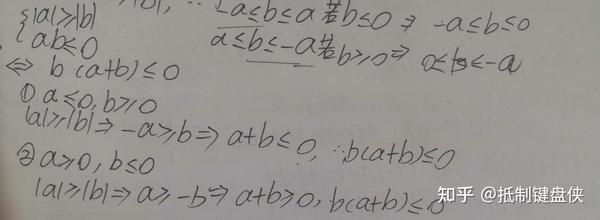 {|a|≥|b|
ab≤0
-a≤b≤a 若b≤0 ⇒ -a≤b≤0
a≤b≤-a若b≥0 ⇒ 0≤b≤-a
⇔ b(a+b)≤0
① a≤0,b≥0
|a|≥|b|⇒-a≥b⇒a+b≤0, ∴b(a+b)≤0
② a≥0,b≤0
|a|≥|b|⇒a≥-b⇒a+b≥0,b(a+b)≤0
知乎 @抵制键盘侠